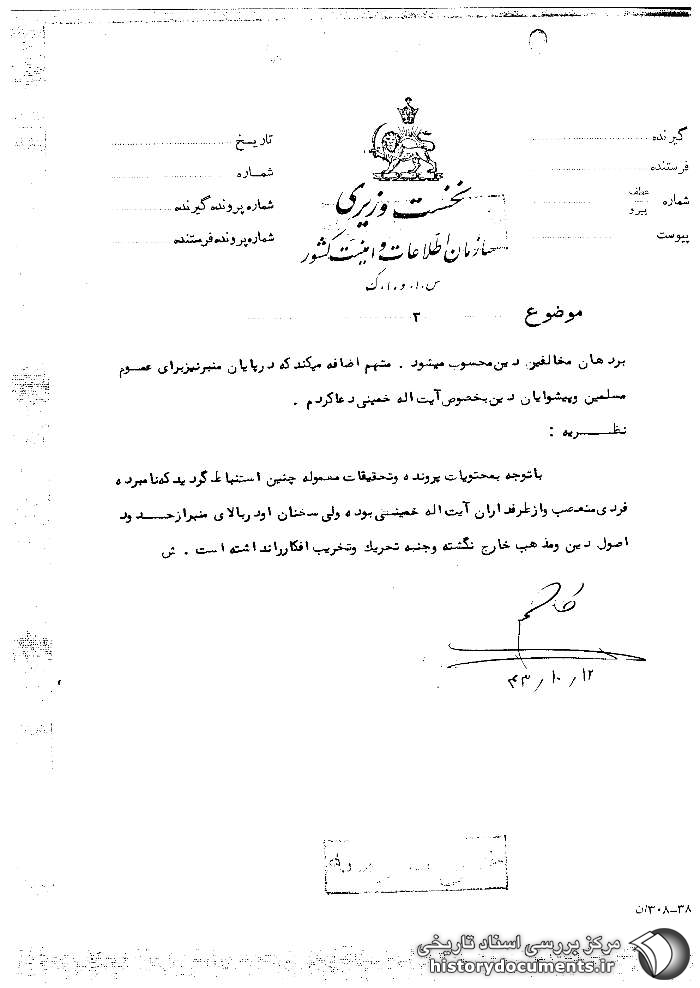 گیرنده
فرستنده
شماره عطف پیرو
پیوست
تاریخ
شماره
شماره پرونده گیرنده
شماره پرونده فرستنده
نخست وزیری
سازمان اطلاعات و امنیت کشور
س.ا.و.ا.ک
موضوع
۲
بردهان مخالفین دین محسوب میشود . متهم اضافه میکند که درپایان منبرنیزبرای عموم
مسلمین وپیشوایان دین بخصوص آیت اله خمینی دعاکردم .
نظریه :
باتوجه بمحتویات پرونده وتحقیقات معموله چنین استنباط گردید که نامبرده
فردی متعصب وازطرفداران آیت اله خمینی بوده ولی سخنان اودربالای منبرازحدود
اصول دین ومذهب خارج نگشته وجنبه تحریک وتخریب افکاررانداشته است . ش
۴۳/۱۰/۱۲
۳۸-۳۰۸/ن
مرکز بررسی اسناد تاریخی
historydocuments.ir